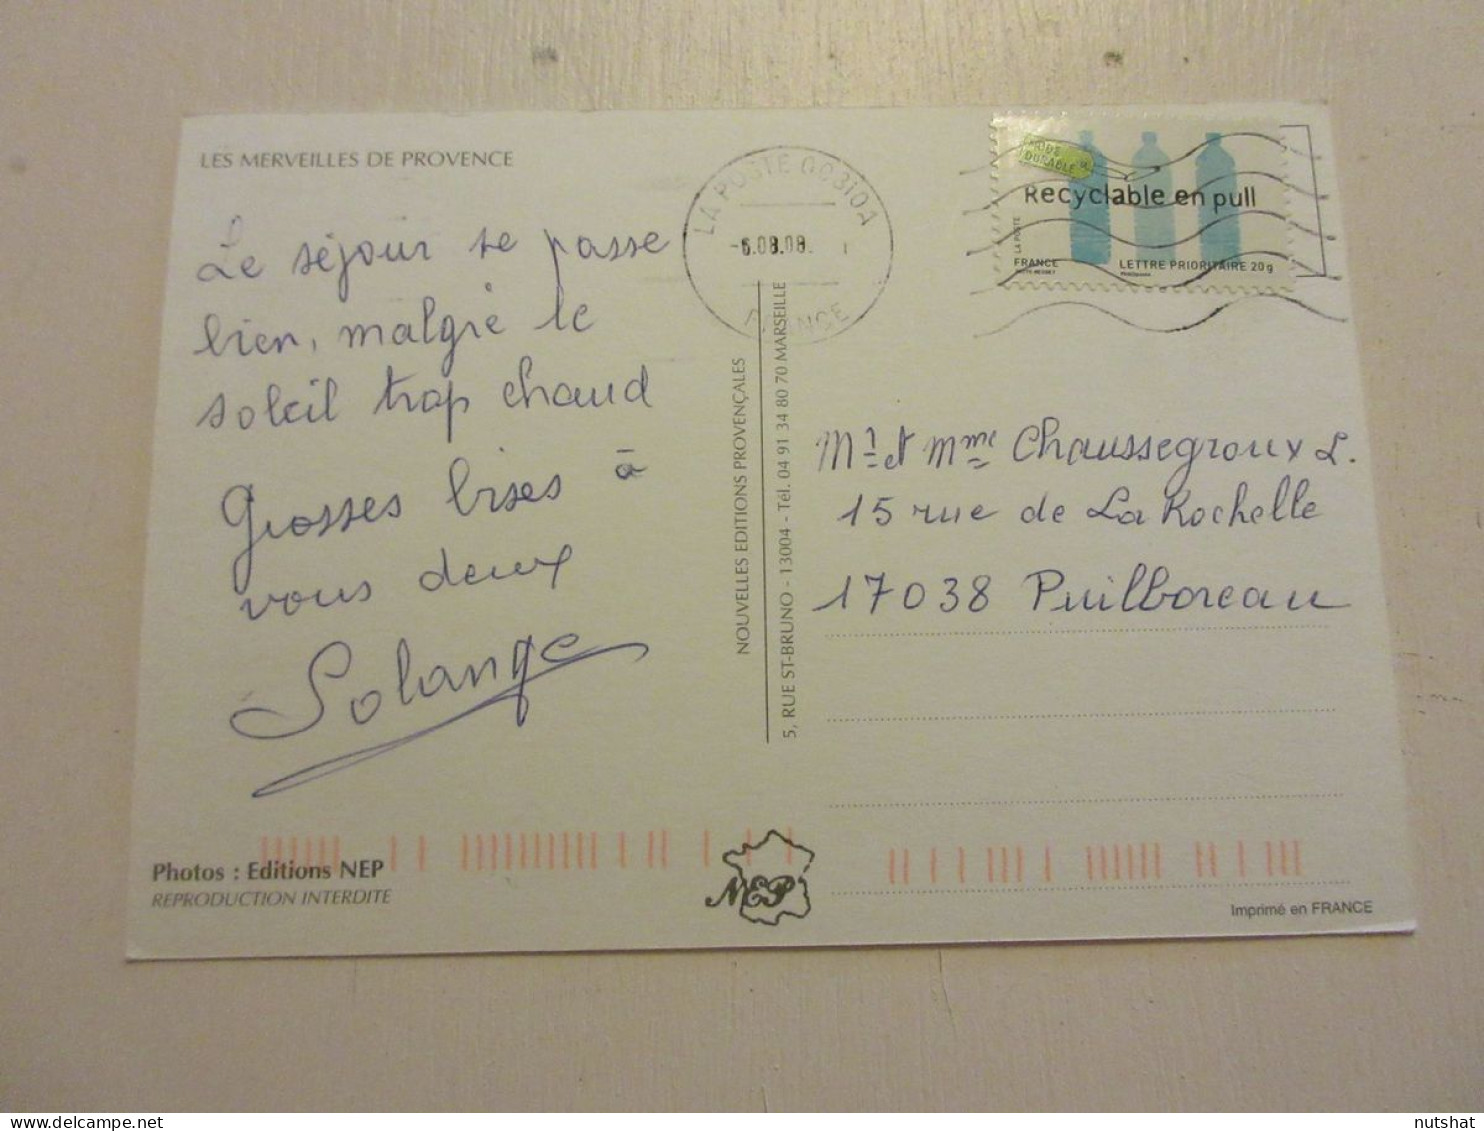 LES MERVEILLES DE PROVENCE
Le séjour se passe
bien, malgré le
soleil trop chaud
Grosses bises à
vous deux
Solange
Photos : Editions NEP
REPRODUCTION INTERDITE
NOUVELLES EDITIONS PROVENÇALES
5, RUE ST-BRUNO - 13004 - Tél. 04 91 34 80 70 MARSEILLE
NEP
LA POSTE 00310A
-6.08.08.
FRANCE
DURABLE
Recyclable en pull
LA POSTE
FRANCE
LETTRE PRIORITAIRE 20g
Mr et Mme Chaussegroux L.
15 rue de La Rochelle
17038 Puilboreau
Imprimé en FRANCE
nutshat